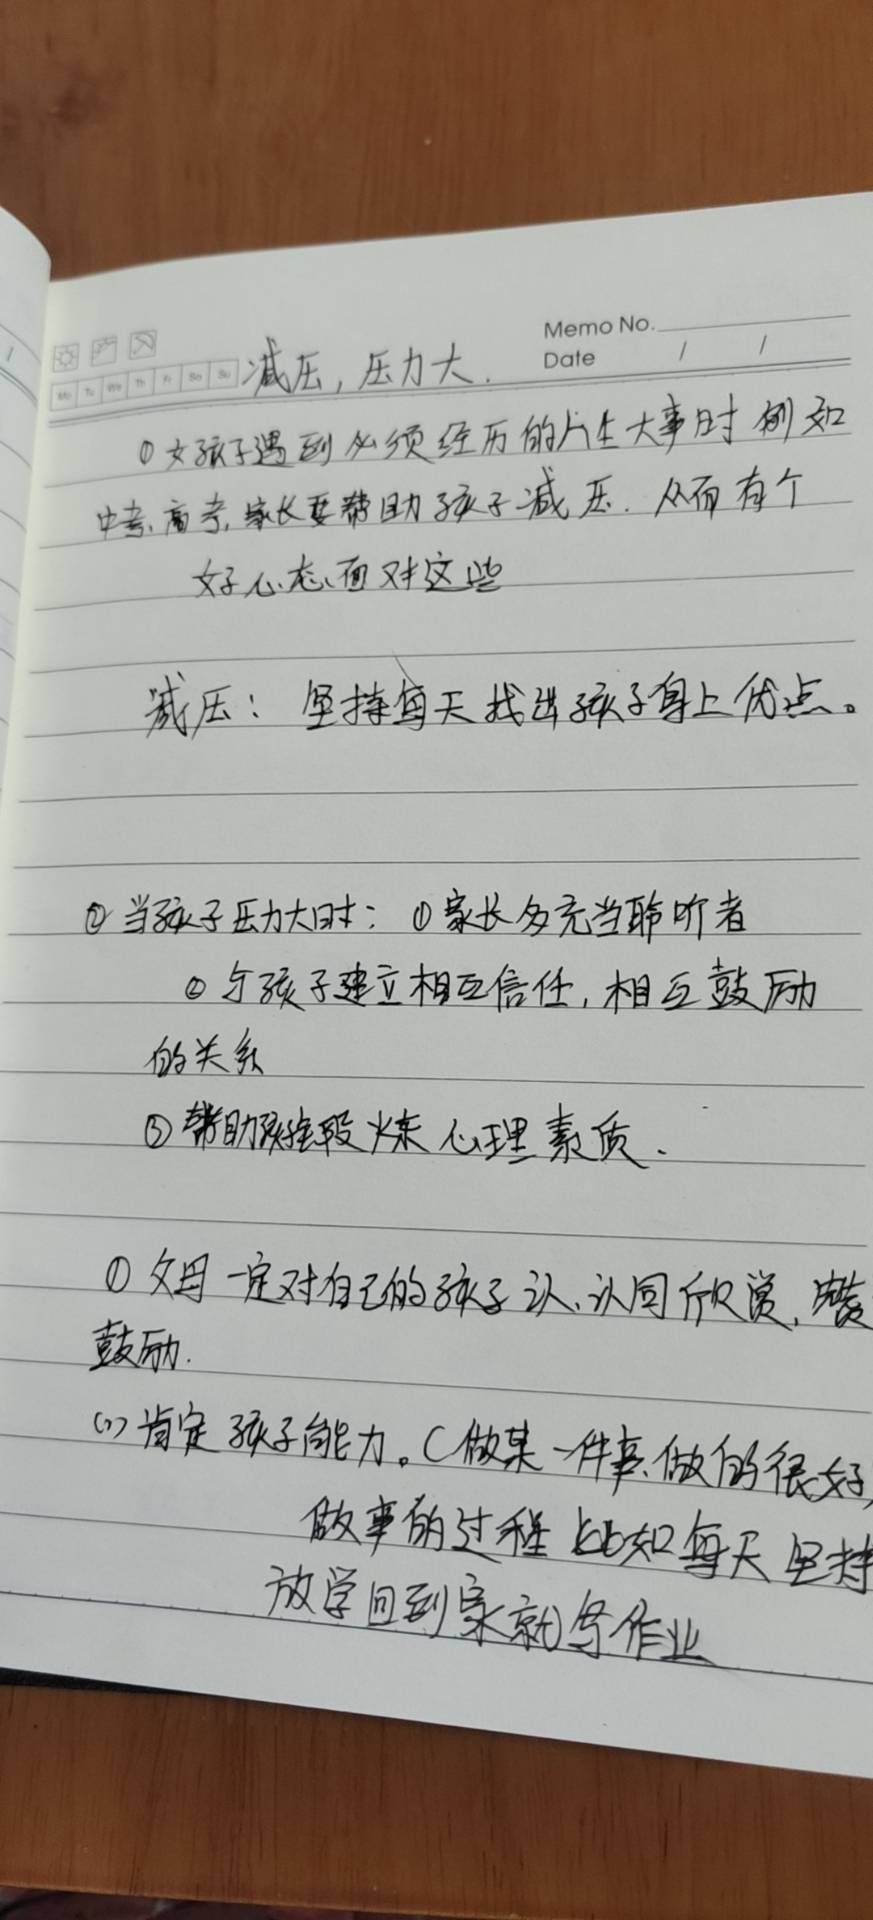 Memo No.
Date / /
Mo Tu We Th Fr Sa Su
减压，压力大.
①女孩子遇到必须经历的人生大事时 例如
中考、高考，家长要帮助孩子减压. 从而有个
好心态面对这些
减压：坚持每天找出孩子身上优点。
②当孩子压力大时：①家长多充当聆听者
②与孩子建立相互信任，相互鼓励
的关系
③帮助孩锻炼心理素质.
①父母一定对自己的孩子认、认同欣赏，
鼓励.
(1)肯定孩子能力。(做某一件事、做的很好，
做事的过程 比如每天坚持
放学回到家就写作业